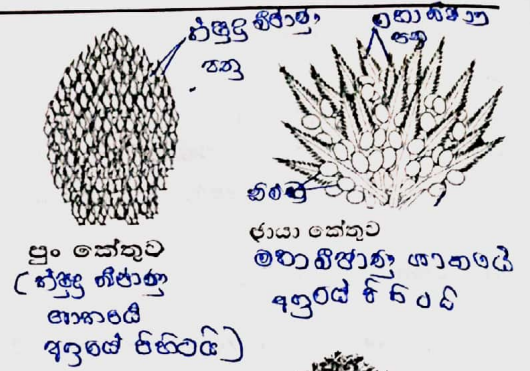 ක්ෂුද්‍ර බීජාණු
පත්‍ර
මහා බීජාණු
පත්‍ර
ඩිම්බ
පුං කේතුව
(ක්ෂුද්‍ර බීජාණු
ශාකයේ
අග්‍රයේ පිහිටයි)
ජායා කේතුව
මහා බීජාණු ශාකයේ
අග්‍රයේ පිහිටයි